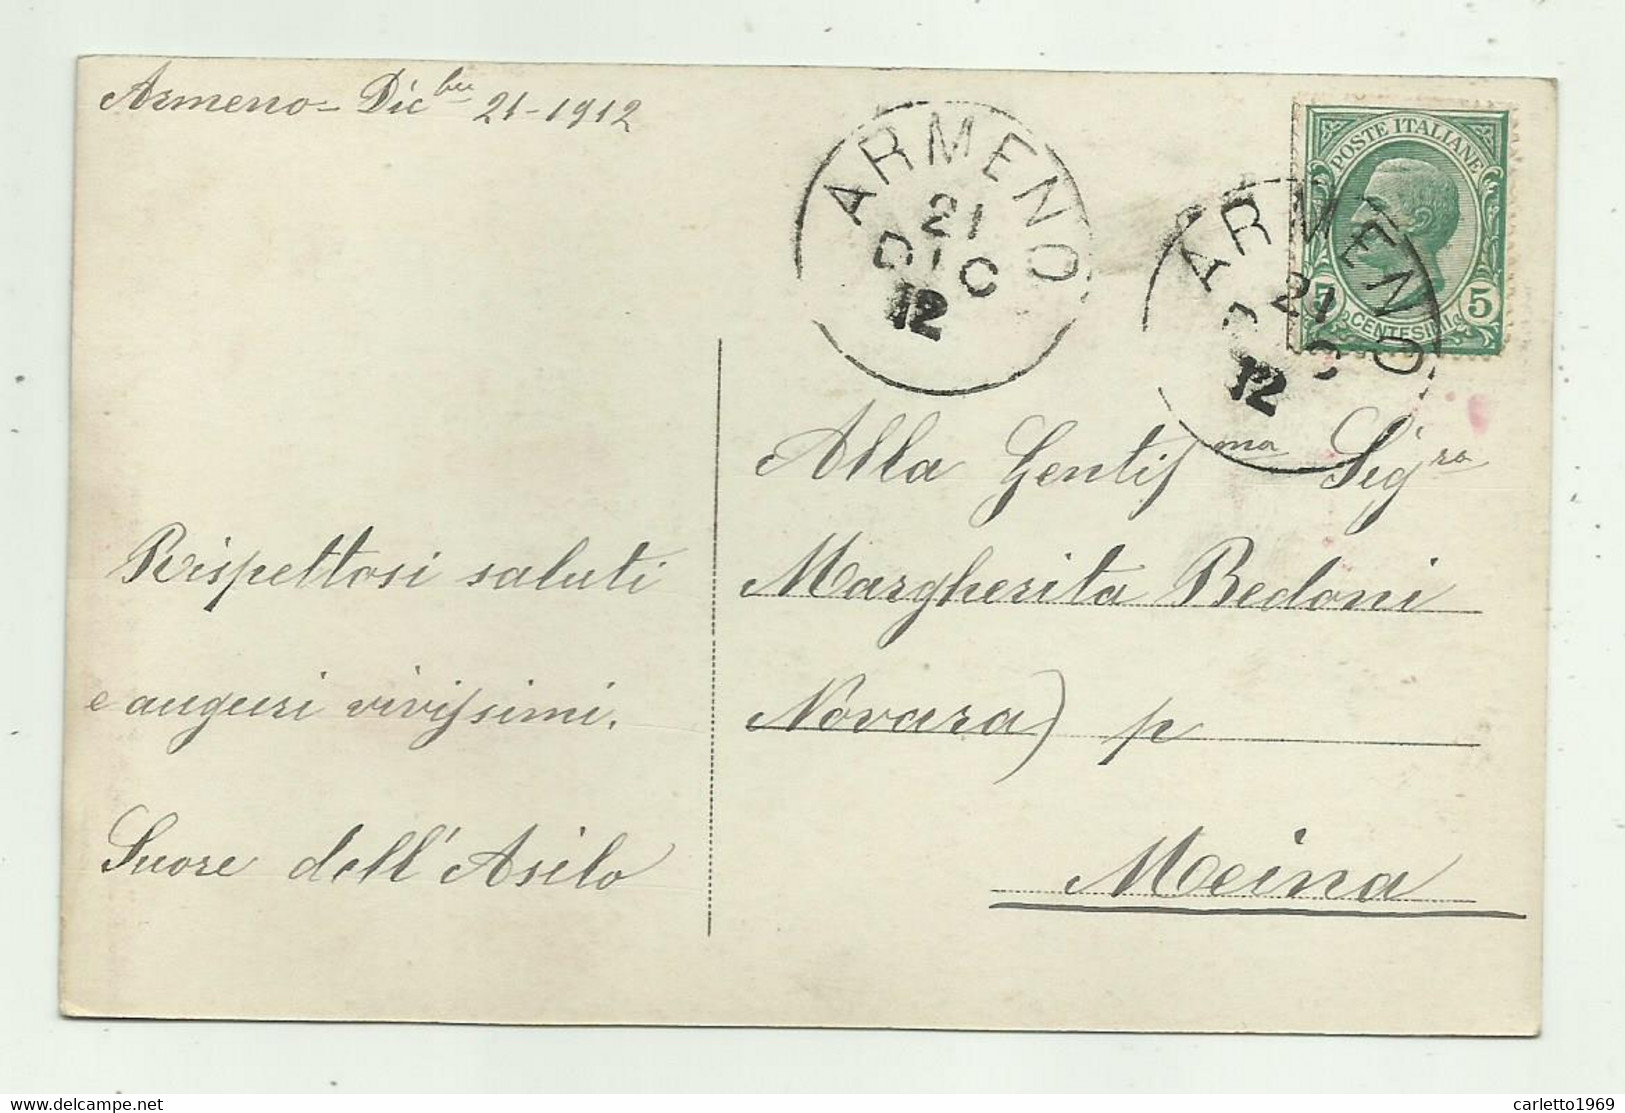 Armeno - Dic.bre 21-1912
ARMENO
21
DIC
12
POSTE ITALIANE
5 5
CENTESIMI
ARMENO
21
DIC
12
Alla Gentilma Sigra
Margherita Bedoni
Novara) p
Meina
Rispettosi saluti
e auguri vivissimi.
Suore dell'Asilo
carletto1969